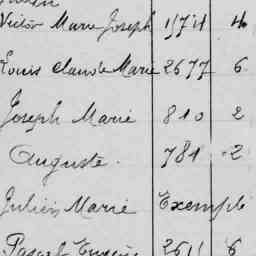 Victor Marie Joseph 1574 4
Louis Claude Marie 2677 6
Joseph Marie 810 2
Auguste. 781 2
Julien Marie Exempté
Pascal Eugène 2611 6